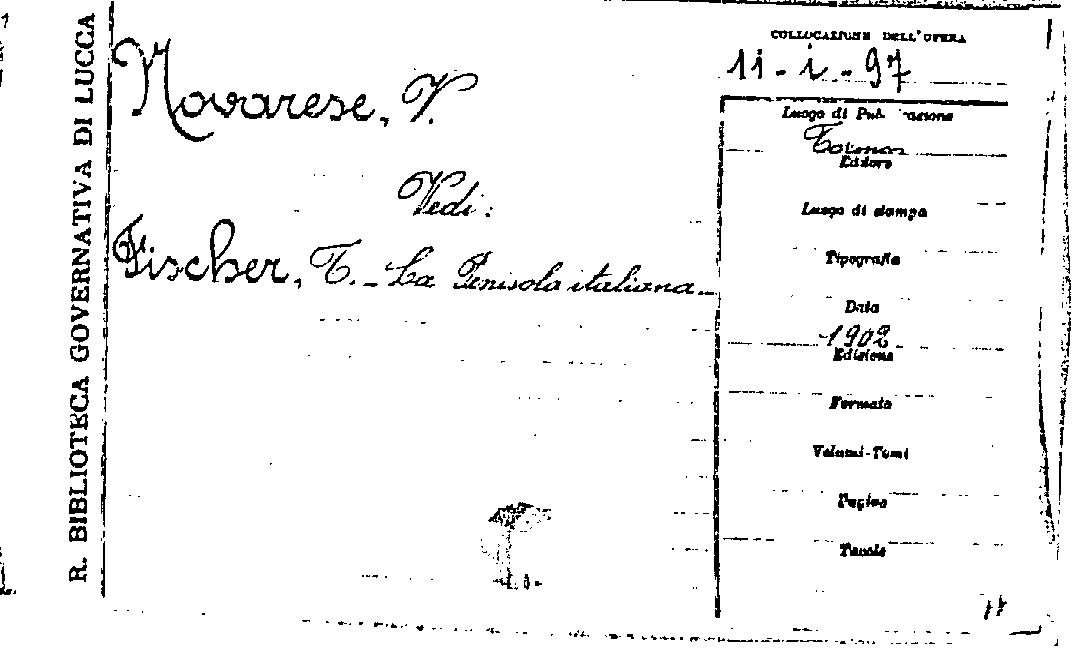 R. BIBLIOTECA GOVERNATIVA DI LUCCA
Novarese, V.
Vedi:
Fischer, T. - La Penisola italiana -
COLLOCAZIONE DELL'OPERA
11 - i - 97
Luogo di Pubblicazione
Torino
Editore
Luogo di stampa
Tipografia
Data
1902
Edizione
Formato
Volumi-Tomi
Pagine
Tavole